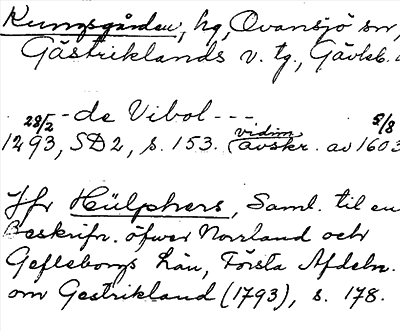 Kungsgården, hg, Ovansjö sn,
Gästriklands v. tg., Gävleb.
- de Vibol - - -
28/2 1293, SD2, s. 153. (vidim. avskr. av 1603 8/8
Jfr Hülphers, Saml. til en
Beskrifn. öfwer Norrland och
Gefleborgs Län, Första Afdeln.
om Gestrikland (1793), s. 178.